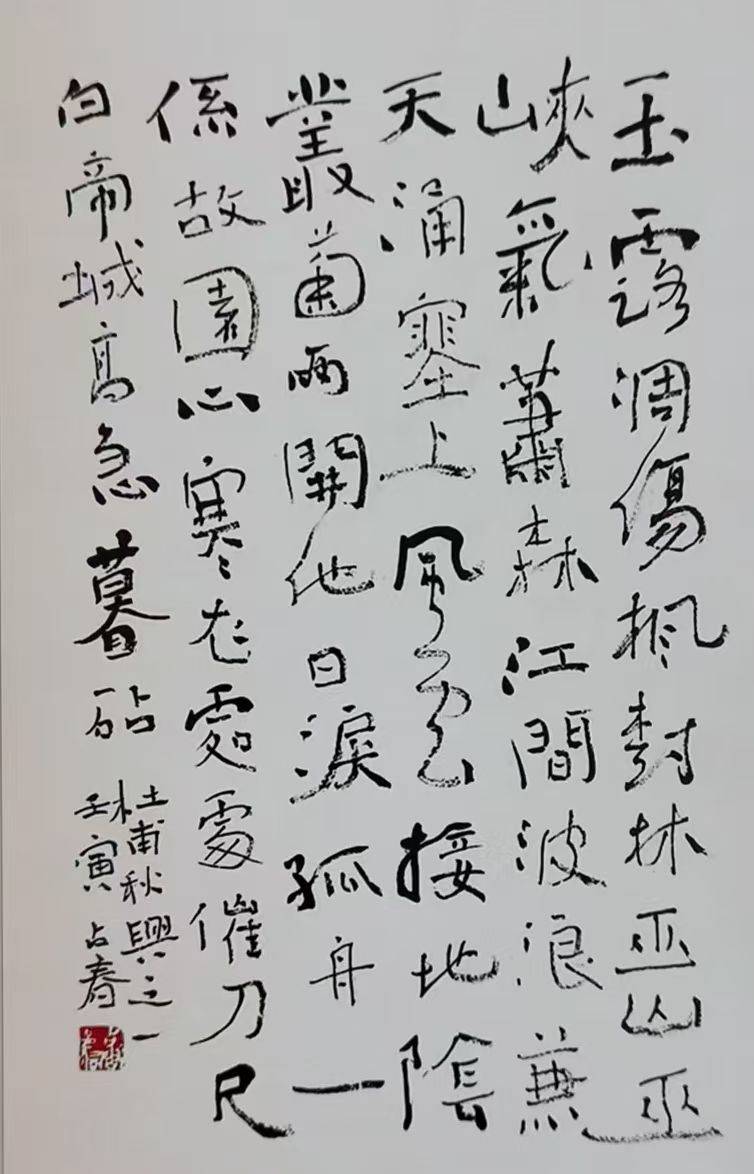 玉露凋傷楓樹林巫山巫
峽氣蕭森江間波浪兼
天涌塞上風雲接地陰
叢菊兩開他日淚孤舟一
係故園心寒衣處處催刀尺
白帝城高急暮砧
杜甫秋興之一
壬寅占春